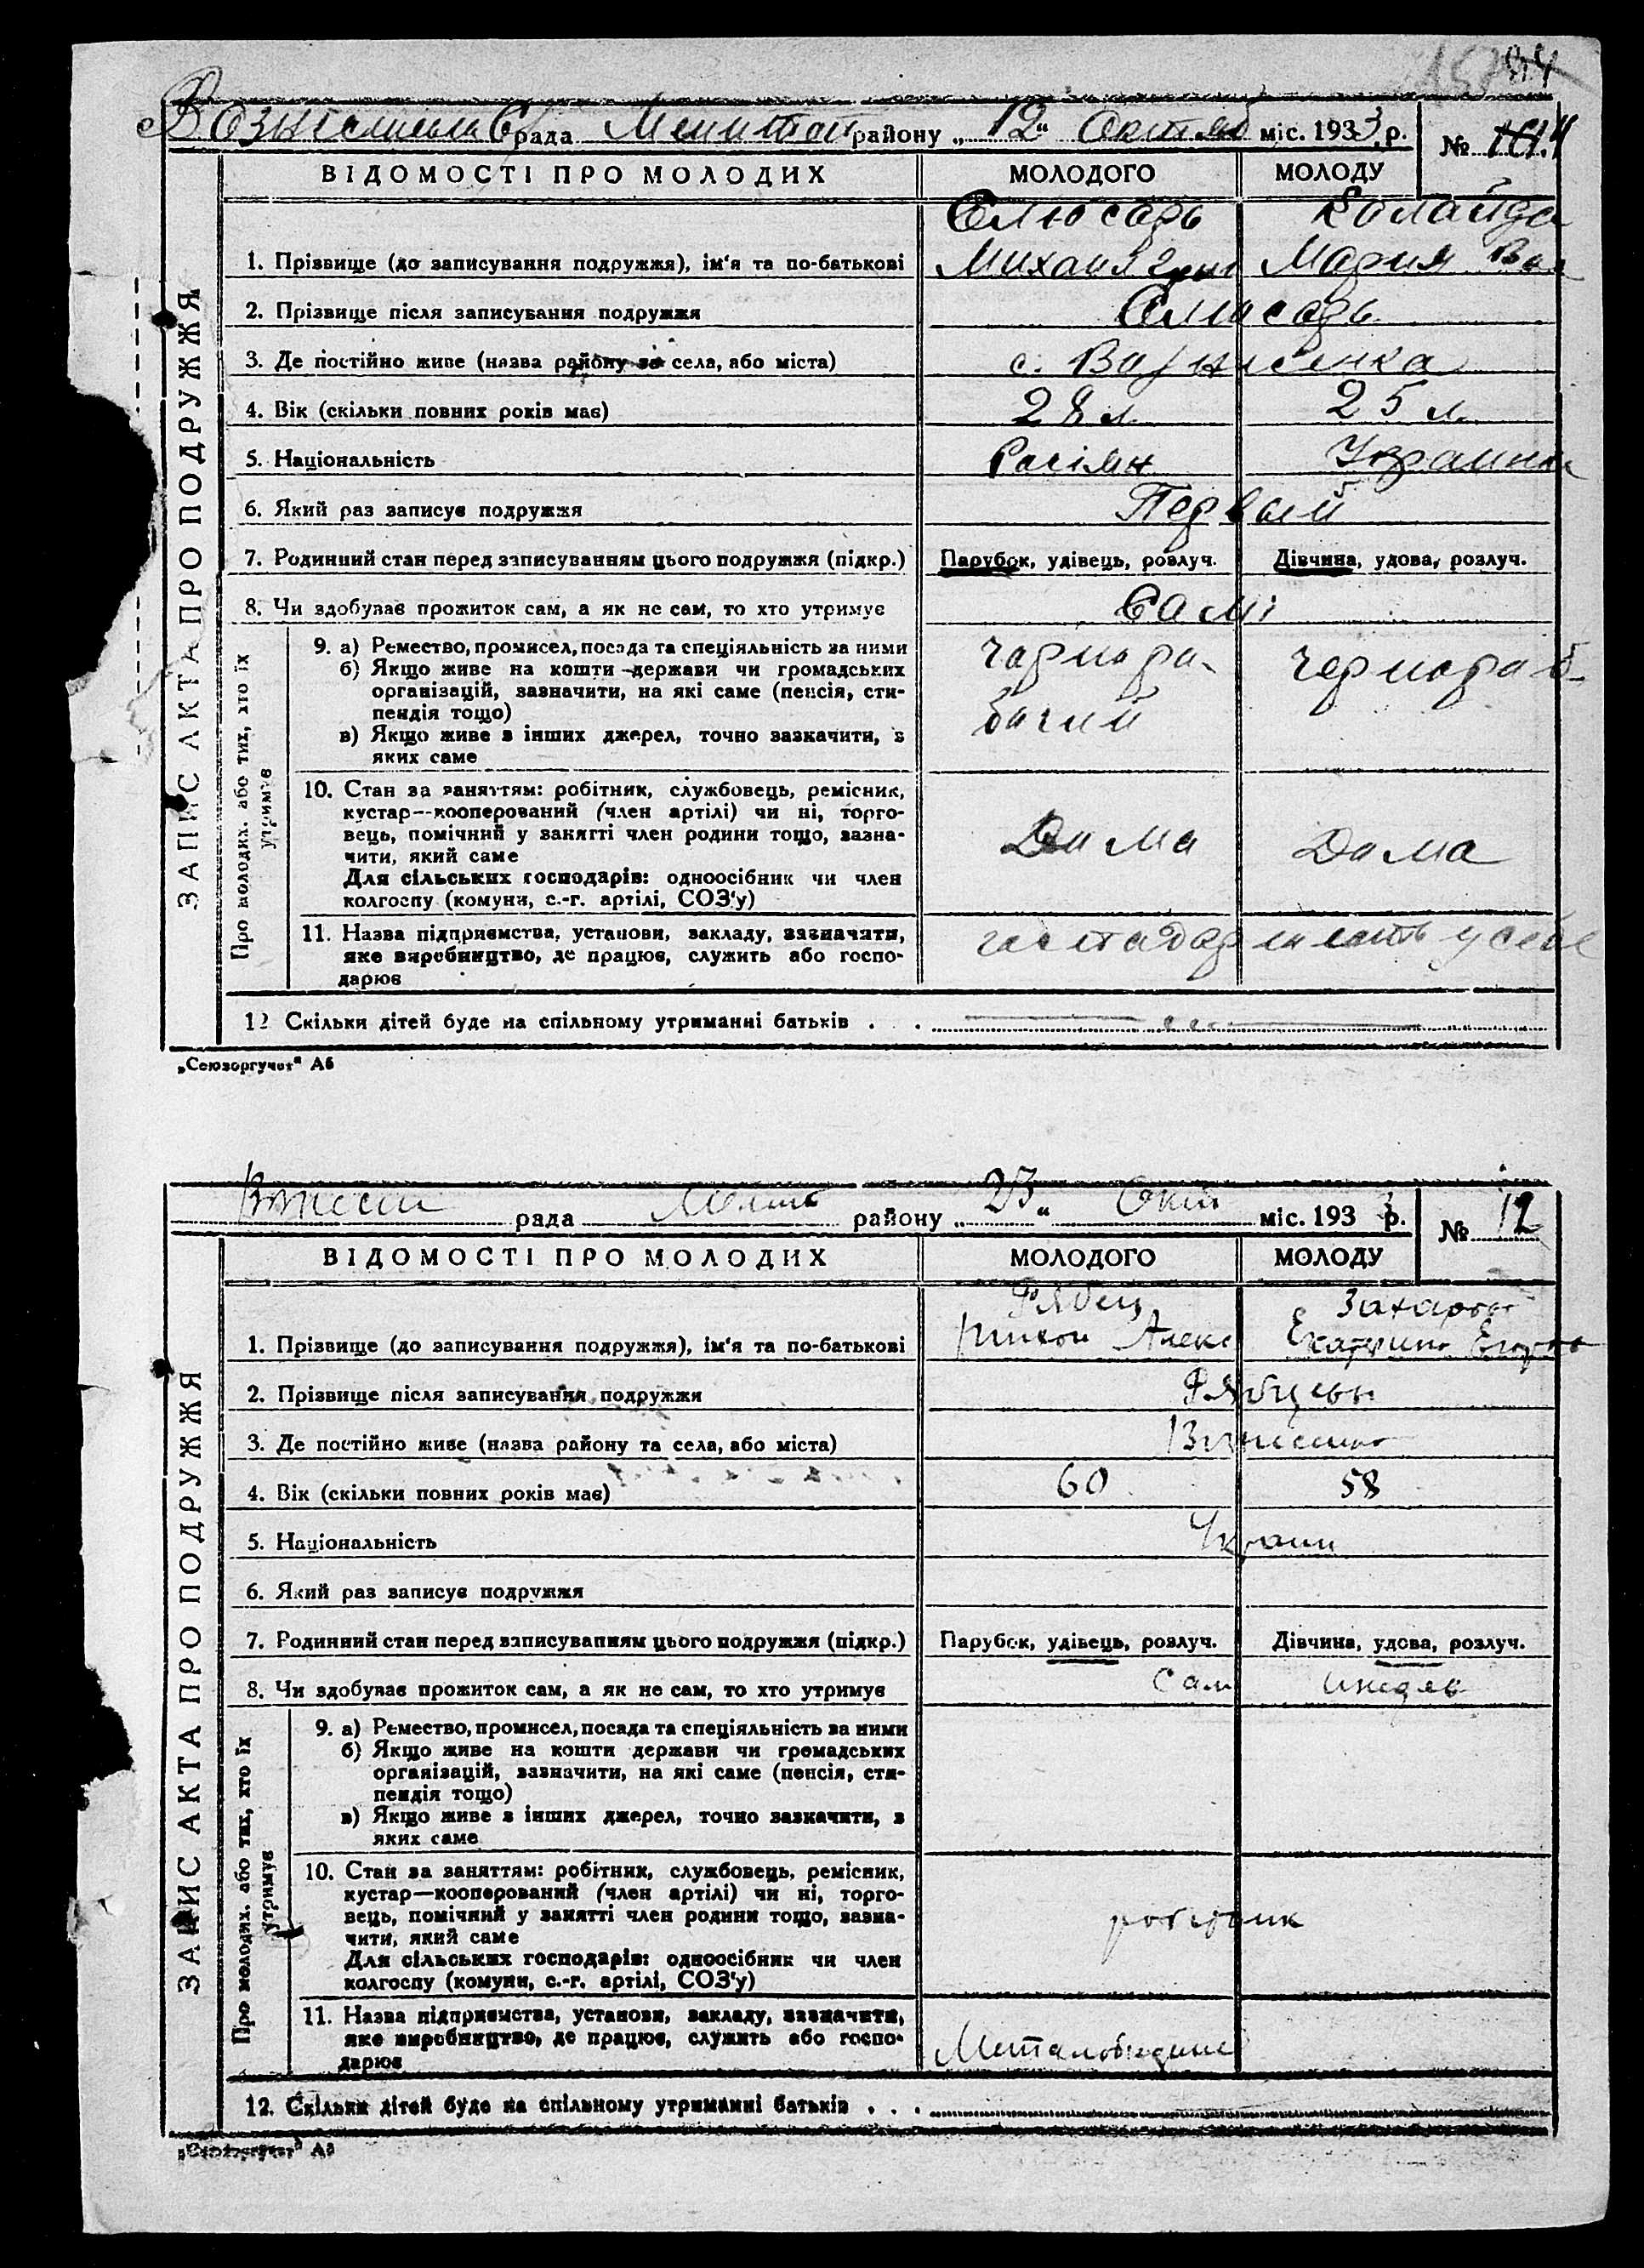 рада Мелитоп району „ 12 “ Октяб міс. 1933 р.
№
ВІДОМОСТІ ПРО МОЛОДИХ МОЛОДОГО МОЛОДУ
ЗАПИС АКТА ПРО ПОДРУЖЖЯ
Слюсарь Колайда
1. Прізвище (до записування подружжя), ім'я та по-батькові Михаил Мария
2. Прізвище після записування подружжя Слюсарь
3. Де постійно живе (назва району та села, або міста) с. Вознесенка
4. Вік (скільки повних років має) 28 л 25 л
5. Національність Росіян Украинка
6. Який раз записує подружжя Первый
7. Родинний стан перед записуванням цього подружжя (підкр.) Парубок, удівець, розлуч. Дівчина, удова, розлуч.
8. Чи здобуває прожиток сам, а як не сам, то хто утримує Самі
Про молодих. або тих, хто їх утримує
9. а) Ремество, промисел, посада та спеціяльність за ними чарнора-
б) Якщо живе на кошти держави чи громадських чернораб-
організацій, зазначити, на які саме (пенсія, сти-
пендія тощо) бочий
в) Якщо живе з інших джерел, точно зазкачити, з
яких саме
10. Стан за заняттям: робітник, службовець, ремісник,
кустар—кооперований (член артілі) чи ні, торго-
вець, помічний у занятті член родини тощо, зазна- Дома Дома
чити, який саме
Для сільських господарів: одноосібник чи член
колгоспу (комуни, с.-г. артілі, СОЗ'у)
11. Назва підприємства, установи, закладу, зазначити,
яке виробництво, де працює, служить або госпо-
дарює
12 Скільки дітей буде на спільному утриманні батьків . .
„Союзоргучет“ А6
рада Мелит району „ 23 “ Окт міс. 1933 р.
№ 12
ВІДОМОСТІ ПРО МОЛОДИХ МОЛОДОГО МОЛОДУ
ЗАПИС АКТА ПРО ПОДРУЖЖЯ
Рябец Захарова
1. Прізвище (до записування подружжя), ім'я та по-батькові Алекс Екатерина
2. Прізвище після записування подружжя Рябцевы
3. Де постійно живе (назва району та села, або міста)
4. Вік (скільки повних років має) 60 58
5. Національність Украин
6. Який раз записує подружжя
7. Родинний стан перед записуванням цього подружжя (підкр.) Парубок, удівець, розлуч. Дівчина, удова, розлуч.
8. Чи здобуває прожиток сам, а як не сам, то хто утримує Сам
Про молодих. або тих, хто їх утримує
9. а) Ремество, промисел, посада та спеціяльність за ними
б) Якщо живе на кошти держави чи громадських
організацій, зазначити, на які саме (пенсія, сти-
пендія тощо)
в) Якщо живе з інших джерел, точно зазкачити, з
яких саме
10. Стан за заняттям: робітник, службовець, ремісник,
кустар—кооперований (член артілі) чи ні, торго-
вець, помічний у занятті член родини тощо, зазна- робітник
чити, який саме
Для сільських господарів: одноосібник чи член
колгоспу (комуни, с.-г. артілі, СОЗ'у)
11. Назва підприємства, установи, закладу, зазначити,
яке виробництво, де працює, служить або госпо-
дарює
12. Скільки дітей буде на спільному утриманні батьків . . .
„Союзоргучет“ А6